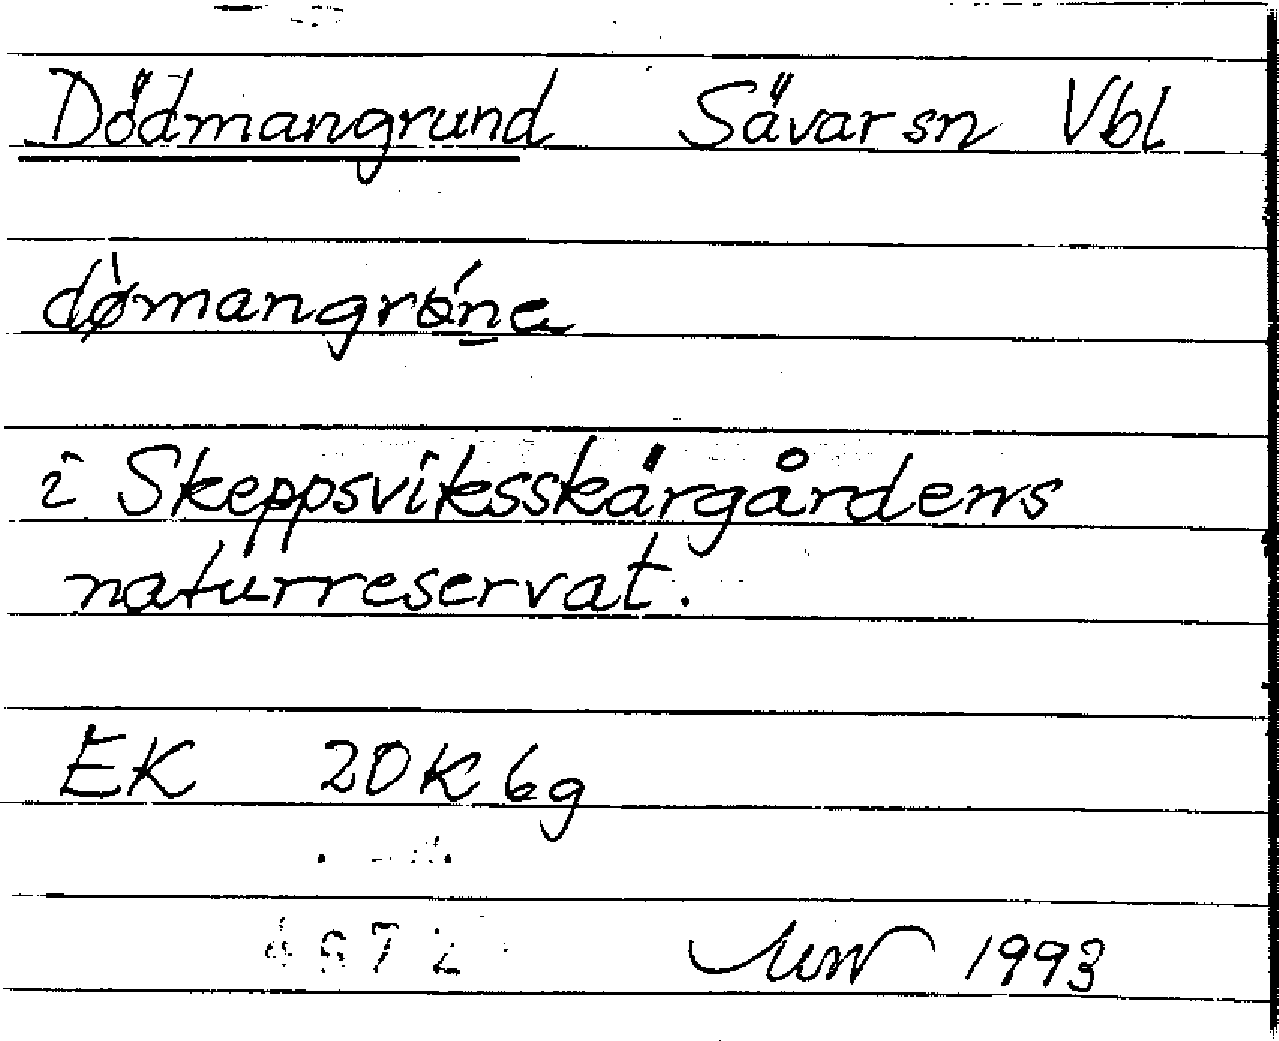 Dödmangrund Sävar sn Vbl
dø̀mangrǿne
i Skeppsviksskärgårdens
naturreservat.
EK 20K 6g
1993